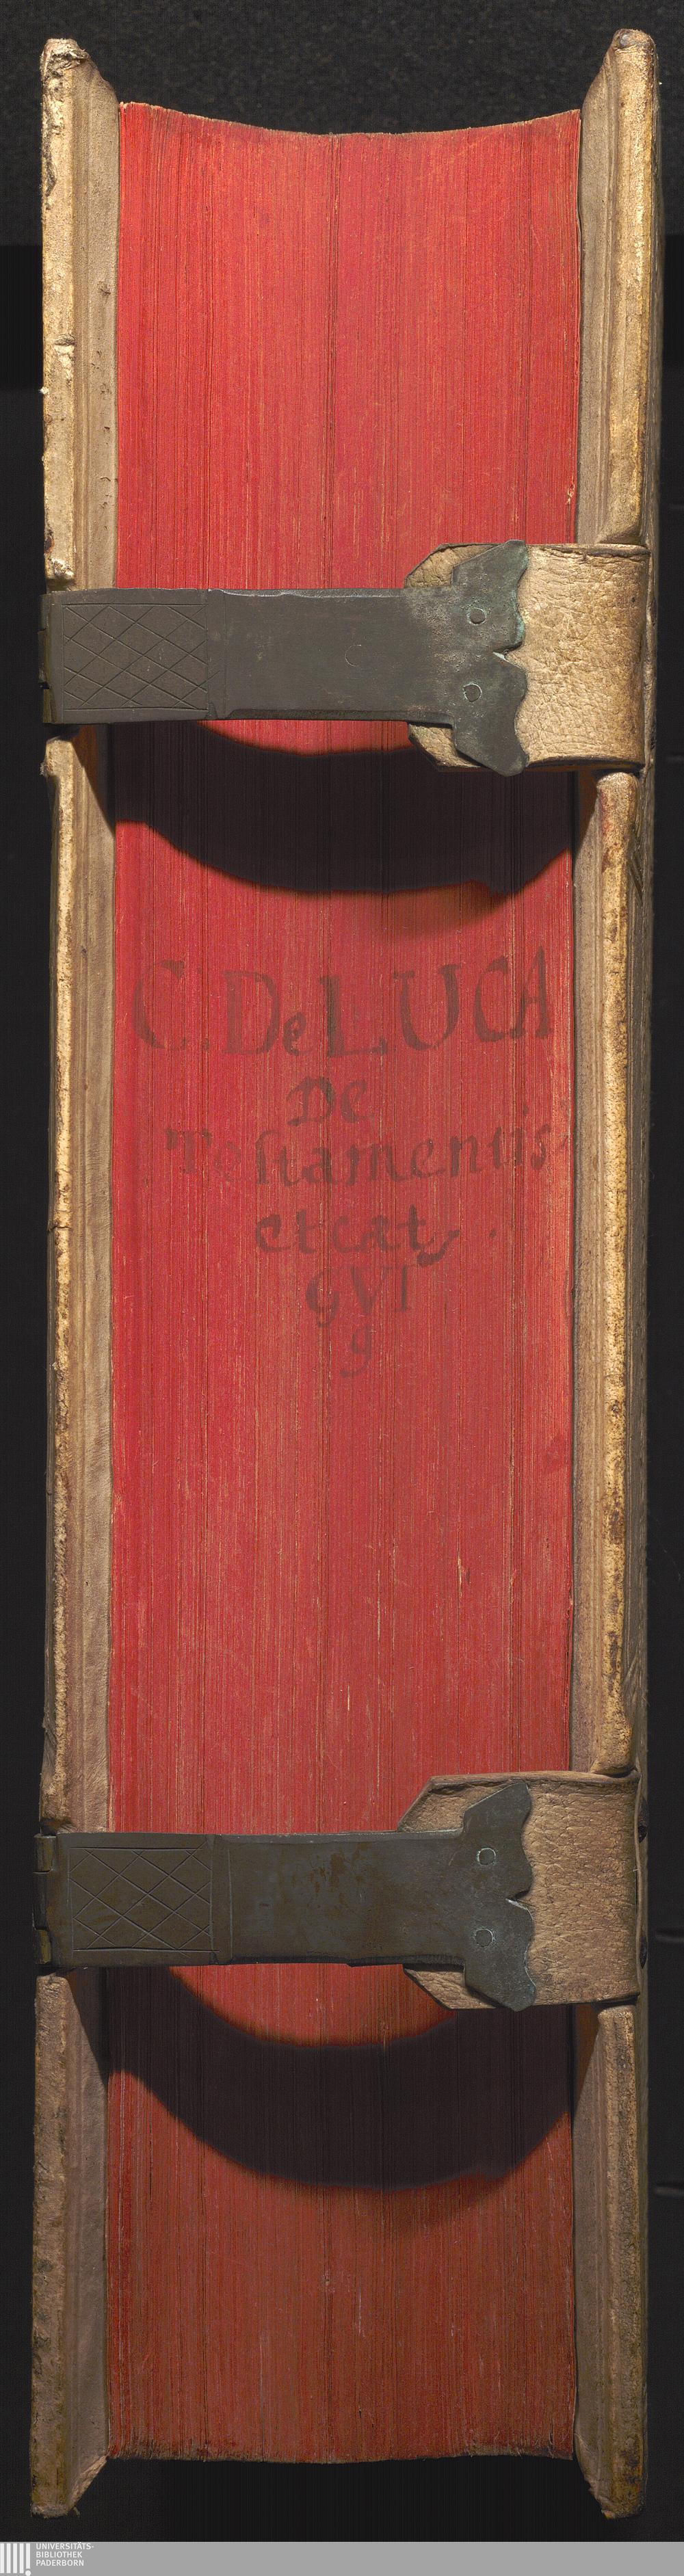 C. De LUCA
De
Testamentis
et cæt.
9 VI
9
UNIVERSITÄTS-
BIBLIOTHEK
PADERBORN